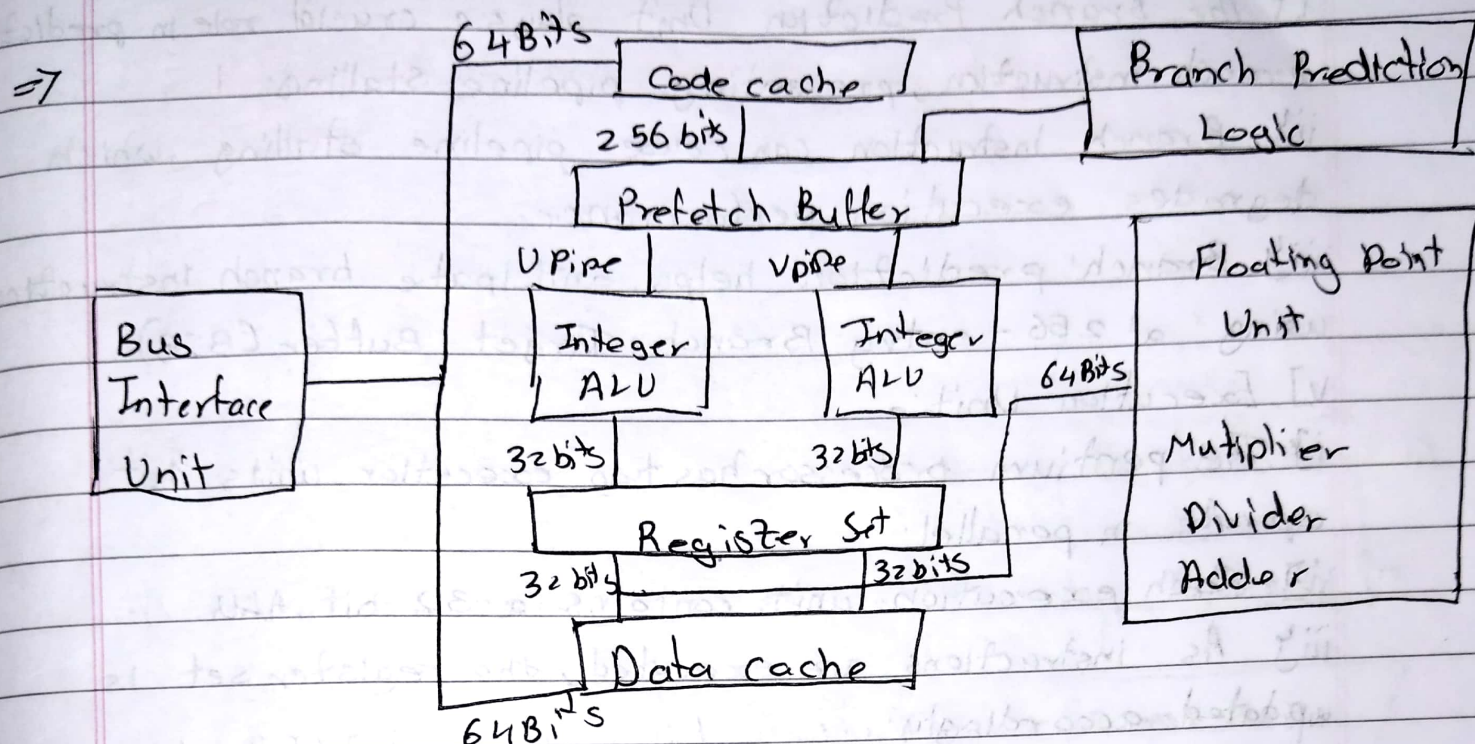 =>
64Bits
Code cache
Branch Prediction
Logic
256 bits
Prefetch Buffer
U Pipe
V pipe
Bus
Interface
Unit
Integer
ALU
Integer
ALU
64Bits
Floating Point
Unit
Mutiplier
Divider
Adder
32 bits
32 bits
Register Set
32 bits
32 bits
Data cache
64Bits